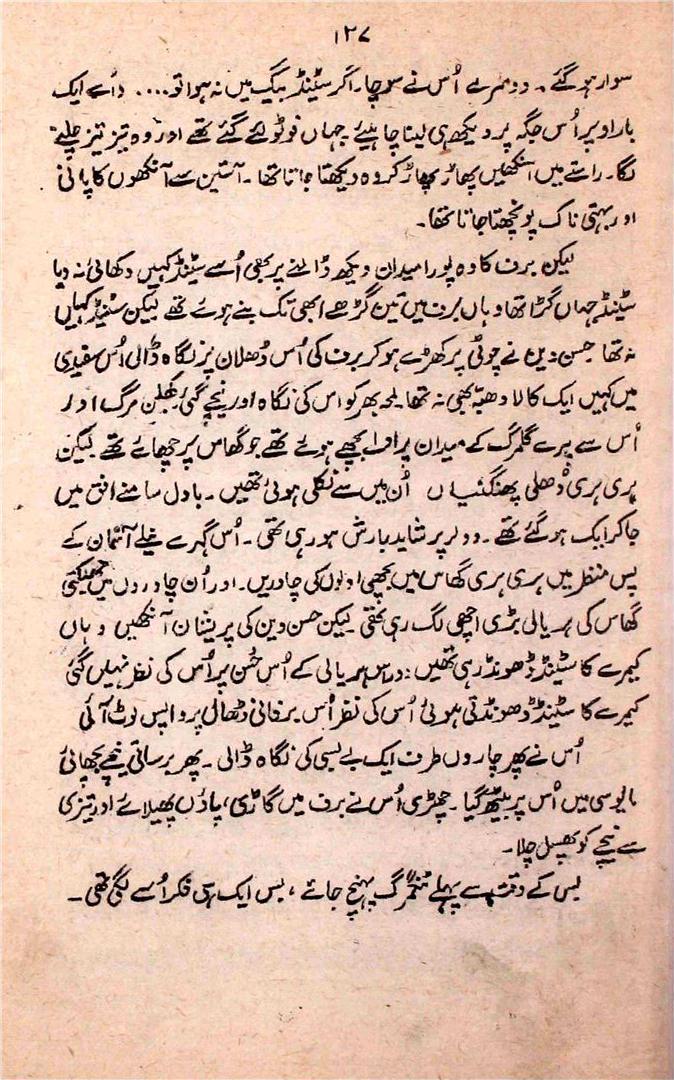 ۱۲۷
سوار ہو گئے۔ دوسرے اُس نے سوچا۔ اگر سٹینڈ بیگ میں نہ ہوا تو.... اُسے ایک
بار اوپر اُس جگہ پر دیکھ ہی لینا چاہیئے جہاں فوٹو لئے گئے تھے اور وہ تیز تیز چلنے
لگا۔ راستے میں آنکھیں پھاڑ پھاڑ کر وہ دیکھتا جاتا تھا۔ آستین سے آنکھوں کا پانی
اور بہتی ناک پونچھتا جاتا تھا۔
لیکن برف کا وہ پورا میدان دیکھ ڈالنے پر بھی اُسے سٹینڈ کہیں دکھائی نہ دیا
سٹینڈ جہاں گڑا تھا وہاں برف میں تین گڑھے ابھی تک بنے ہوئے تھے لیکن سٹینڈ کہیں
نہ تھا حسن دین نے چوٹی پر کھڑے ہو کر برف کی اُس ڈھلان پر نگاہ ڈالی اُس سفیدی
میں کہیں ایک کالا دھبہ بھی نہ تھا۔ لمحہ بھر کو اس کی نگاہ اور نیچے گئی، کھلن مرگ اور
اُس سے پرے گلمرگ کے میدان پر اولے بچھے ہوئے تھے جو گھاس پر چھائے تھے لیکن
ہری ہری دُھلی پھنگئیاں اُن میں سے نکلی ہوئی تھیں۔ بادل سامنے افق میں
جا کر ایک ہو گئے تھے۔ وولر پر شاید بارش ہو رہی تھی۔ اُس گہرے نیلے آسمان کے
پس منظر میں ہری ہری گھاس میں بچھی اولوں کی چادریں۔ اور اُن چادروں میں جھلکتی
گھاس کی ہریالی بڑی اچھی لگ رہی تھی۔ لیکن حسن دین کی پریشان آنکھیں وہاں
کیمرے کا سٹینڈ ڈھونڈ رہی تھیں: دراس ہریالی کے اُس حُسن پر اُس کی نظر نہیں گئی
کیمرے کا سٹینڈ ڈھونڈتی ہوئی اُس کی نظر اُس برفانی ڈھال پر واپس لوٹ آئی
اُس نے پھر چاروں طرف ایک بے بسی کی نگاہ ڈالی۔ پھر برساتی نیچے بچھائی
مایوسی میں اُس پر بیٹھ گیا۔ چھڑی اُس نے برف میں گاڑی، پاؤں پھیلائے اور تیزی
سے نیچے کو پھسل چلا۔
بس کے وقت سے پہلے ٹنگمرگ پہنچ جائے، بس ایک ہی فکر اُسے لگی تھی۔